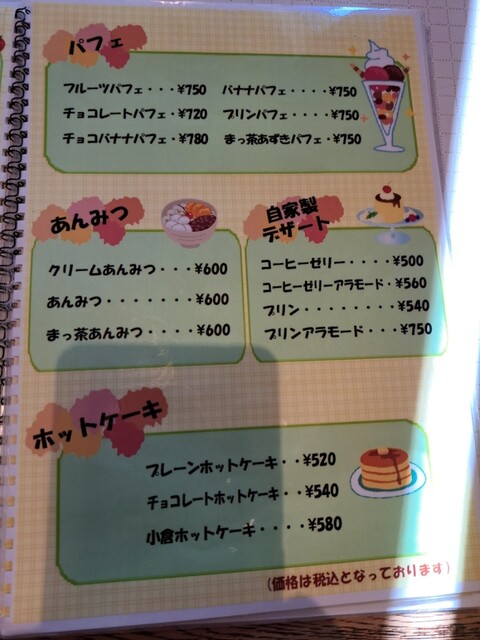 パフェ
フルーツパフェ・・・¥750
バナナパフェ・・・・¥750
チョコレートパフェ・¥720
プリンパフェ・・・・¥750
チョコバナナパフェ・¥780
まっ茶あずきパフェ・¥750
あんみつ
クリームあんみつ・・・¥600
あんみつ・・・・・・・¥600
まっ茶あんみつ・・・・¥600
自家製
デザート
コーヒーゼリー・・・・¥500
コーヒーゼリーアラモード・¥560
プリン・・・・・・・・¥540
プリンアラモード・・・¥750
ホットケーキ
プレーンホットケーキ・・¥520
チョコレートホットケーキ・・¥540
小倉ホットケーキ・・・・¥580
(価格は税込となっております)